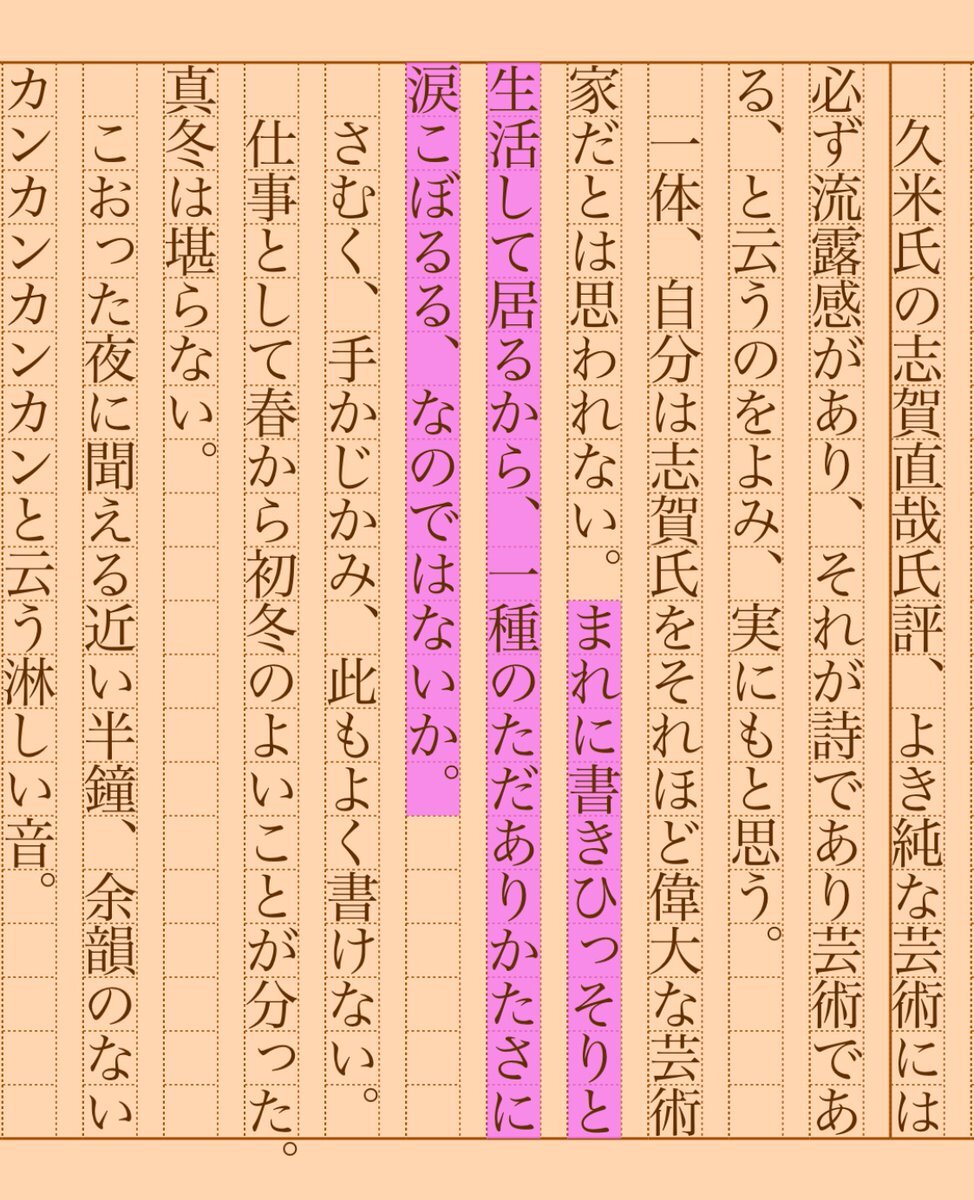 久米氏の志賀直哉氏評、よき純な芸術には
必ず流露感があり、それが詩であり芸術であ
る、と云うのをよみ、実にもと思う。
一体、自分は志賀氏をそれほど偉大な芸術
家だとは思われない。まれに書きひっそりと
生活して居るから、一種のただありかたさに
涙こぼるる、なのではないか。
さむく、手かじかみ、此もよく書けない。
仕事として春から初冬のよいことが分った。
真冬は堪らない。
こおった夜に聞える近い半鐘、余韻のない
カンカンカンカンと云う淋しい音。